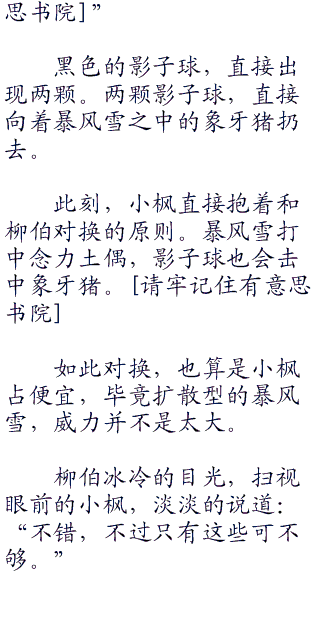 思书院]”
黑色的影子球，直接出
现两颗。两颗影子球，直接
向着暴风雪之中的象牙猪扔
去。
此刻，小枫直接抱着和
柳伯对换的原则。暴风雪打
中念力土偶，影子球也会击
中象牙猪。[请牢记住有意思
书院]
如此对换，也算是小枫
占便宜，毕竟扩散型的暴风
雪，威力并不是太大。
柳伯冰冷的目光，扫视
眼前的小枫，淡淡的说道：
“不错，不过只有这些可不
够。”